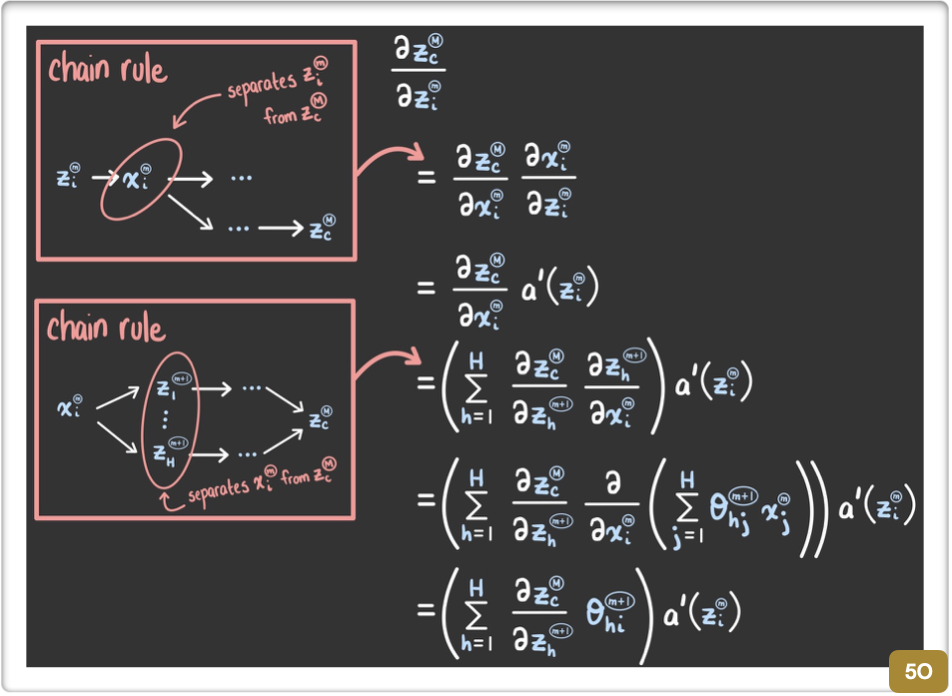 chain rule
separates zᵢ^(m)
from z_c^(M)
zᵢ^(m) → xᵢ^(m) → ...
... → z_c^(M)
chain rule
xᵢ^(m)
z₁^(m+1) → ...
⋮
z_c^(M)
z_H^(m+1) → ...
separates xᵢ^(m) from z_c^(M)
∂z_c^(M) / ∂zᵢ^(m)
= ∂z_c^(M) / ∂xᵢ^(m) ∂xᵢ^(m) / ∂zᵢ^(m)
= ∂z_c^(M) / ∂xᵢ^(m) a'(zᵢ^(m))
= ( ∑_{h=1}^{H} ∂z_c^(M) / ∂z_h^(m+1) ∂z_h^(m+1) / ∂xᵢ^(m) ) a'(zᵢ^(m))
= ( ∑_{h=1}^{H} ∂z_c^(M) / ∂z_h^(m+1) ∂ / ∂xᵢ^(m) ( ∑_{j=1}^{H} θ_{hj}^(m+1) x_j^(m) ) ) a'(zᵢ^(m))
= ( ∑_{h=1}^{H} ∂z_c^(M) / ∂z_h^(m+1) θ_{hi}^(m+1) ) a'(zᵢ^(m))
50